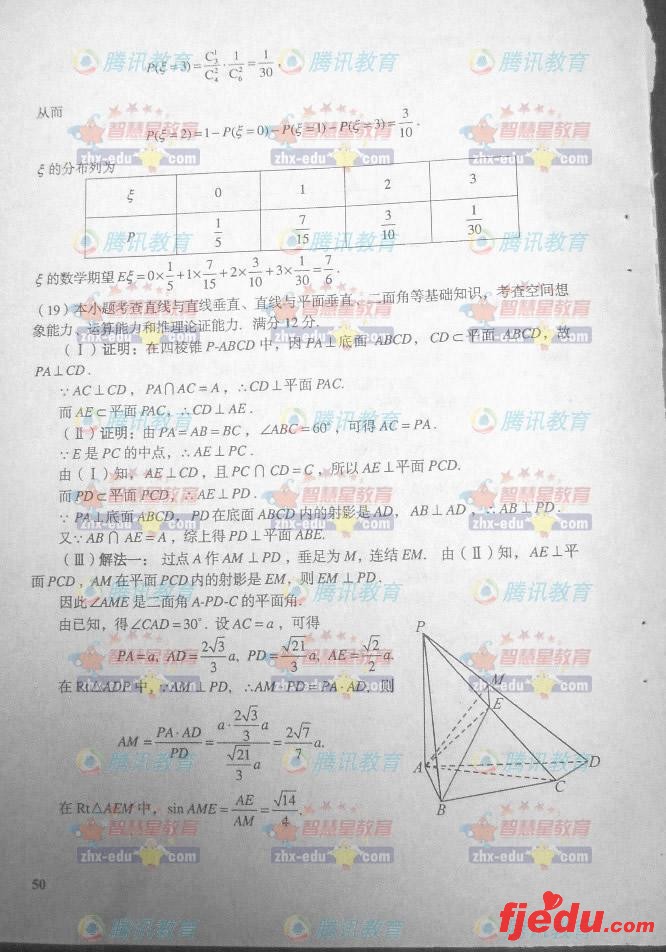 P(ξ=3)=C₃¹/C₄²·1/C₆²=1/30,
从而
P(ξ=2)=1-P(ξ=0)-P(ξ=1)-P(ξ=3)=3/10.
ξ的分布列为
ξ 0 1 2 3
P 1/5 7/15 3/10 1/30
ξ的数学期望Eξ=0×1/5+1×7/15+2×3/10+3×1/30=7/6.
(19)本小题考查直线与直线垂直、直线与平面垂直、二面角等基础知识,考查空间想
象能力、运算能力和推理论证能力.满分12分.
(Ⅰ)证明:在四棱锥P-ABCD中,因PA⊥底面ABCD,CD⊂平面ABCD,故
PA⊥CD.
∵AC⊥CD,PA∩AC=A,∴CD⊥平面PAC.
而AE⊂平面PAC,∴CD⊥AE.
(Ⅱ)证明:由PA=AB=BC,∠ABC=60°,可得AC=PA.
∵E是PC的中点,∴AE⊥PC.
由(Ⅰ)知,AE⊥CD,且PC∩CD=C,所以AE⊥平面PCD.
而PD⊂平面PCD,∴AE⊥PD.
∵PA⊥底面ABCD,PD在底面ABCD内的射影是AD,AB⊥AD,∴AB⊥PD.
又∵AB∩AE=A,综上得PD⊥平面ABE.
(Ⅲ)解法一:过点A作AM⊥PD,垂足为M,连结EM.由(Ⅱ)知,AE⊥平
面PCD,AM在平面PCD内的射影是EM,则EM⊥PD.
因此∠AME是二面角A-PD-C的平面角.
由已知,得∠CAD=30°.设AC=a,可得
PA=a, AD=2√3/3 a, PD=√21/3 a, AE=√2/2 a.
在Rt△ADP中,∵AM⊥PD,∴AM·PD=PA·AD,则
AM=PA·AD/PD=(a·2√3/3 a)/(√21/3 a)=2√7/7 a.
在Rt△AEM中,sin AME=AE/AM=√14/4.
P
M
E
A
D
C
B
50
腾讯教育
智慧星教育
zhx-edu.com
fjedu.com